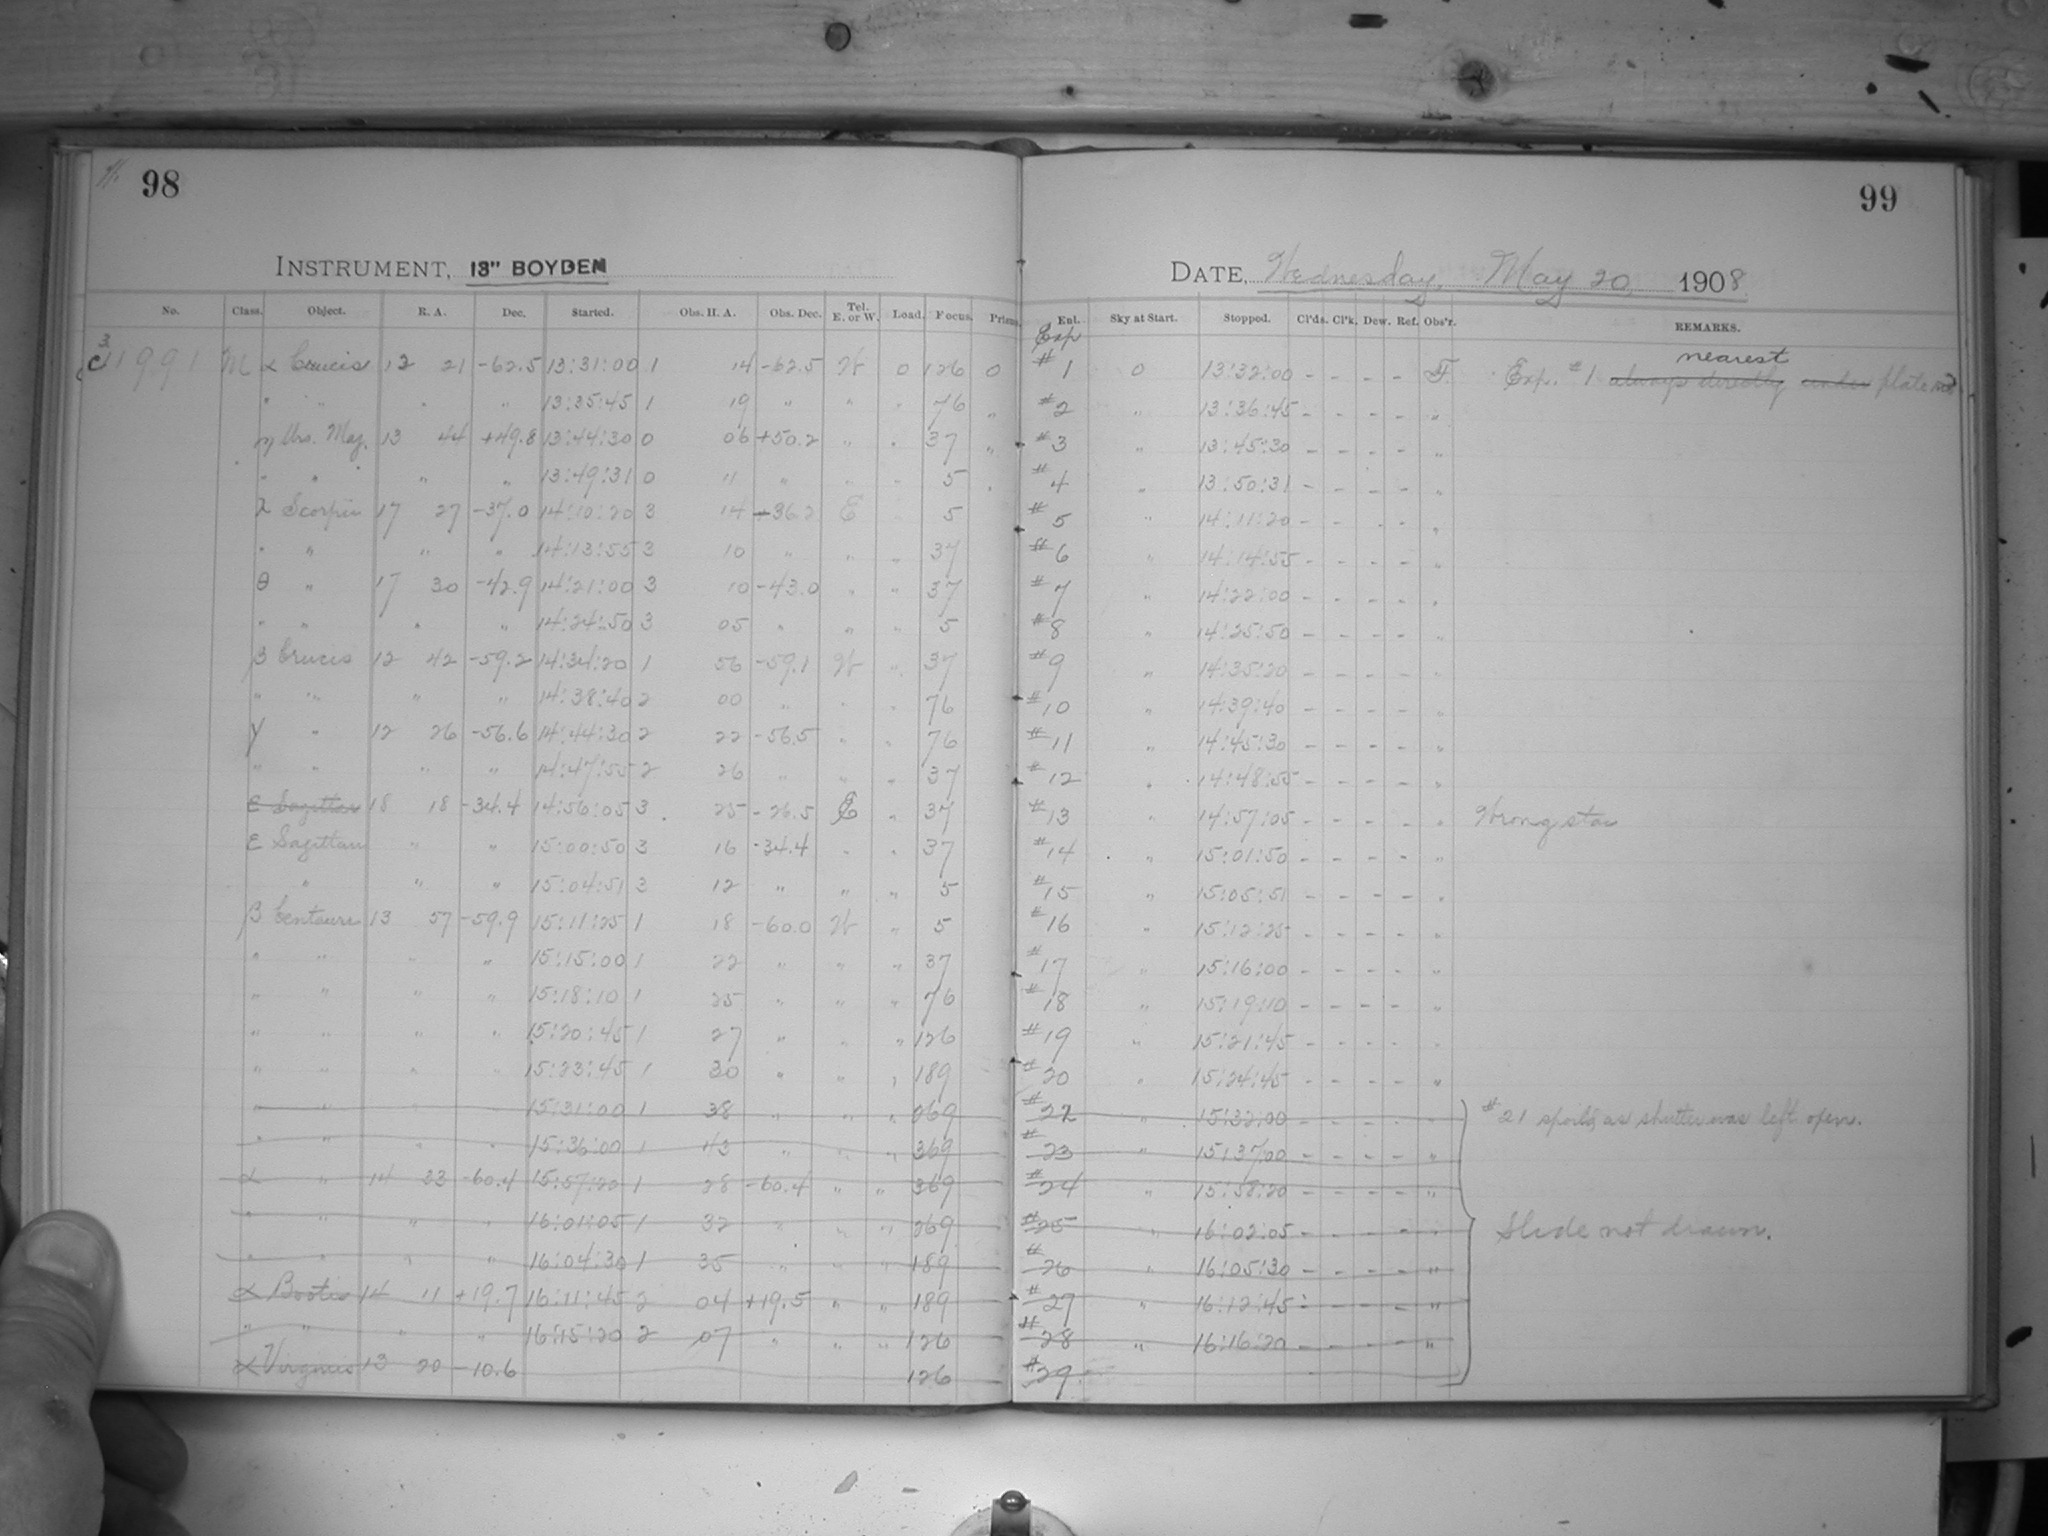 98
99
INSTRUMENT, 13" BOYDEN
DATE, Wednesday, May 20, 1908
No. Class. Object. R. A. Dec. Started. Obs. H. A. Obs. Dec. Tel. E. or W. Load. Focus. Prism. Ent. Exp Sky at Start. Stopped. Cl'ds. Cl'k. Dew. Ref. Obs'r. REMARKS.
nearest
C 11991 M α Crucis 12 21 -62.5 13:31:00 1 14 -62.5 W 0 126 0 #1 0 13:32:00 - - - - F. Exp. #1 always directly under plate no.
" " " " 13:35:45 1 19 " " " 76 " #2 " 13:36:45 - - - - "
η Urs. Maj. 13 44 +49.8 13:44:30 0 06 +50.2 " " 37 " #3 " 13:45:30 - - - - "
" " " " 13:49:31 0 11 " " " 5 " #4 " 13:50:31 - - - - "
λ Scorpii 17 27 -37.0 14:10:20 3 14 -36.2 E " 5 #5 " 14:11:20 - - - - "
" " " " 14:13:55 3 10 " " " 37 #6 " 14:14:55 - - - - "
θ " 17 30 -42.9 14:21:00 3 10 -43.0 " " 37 #7 " 14:22:00 - - - - "
" " " " 14:24:50 3 05 " " " 5 #8 " 14:25:50 - - - - "
β Crucis 12 42 -59.2 14:34:20 1 56 -59.1 W " 37 #9 " 14:35:20 - - - - "
" " " " 14:38:40 2 00 " " " 76 #10 " 14:39:40 - - - - "
γ " 12 26 -56.6 14:44:30 2 22 -56.5 " " 76 #11 " 14:45:30 - - - - "
" " " " 14:47:55 2 26 " " " 37 #12 " 14:48:55 - - - - "
ε Sagittar 18 18 -34.4 14:56:05 3 25 -26.5 E " 37 #13 " 14:57:05 - - - - " Wrong star
ε Sagittari " " 15:00:50 3 16 -34.4 " " 37 #14 " 15:01:50 - - - - "
" " " 15:04:51 3 12 " " " 5 #15 " 15:05:51 - - - - "
β Centauri 13 57 -59.9 15:11:25 1 18 -60.0 W " 5 #16 " 15:12:25 - - - - "
" " " " 15:15:00 1 22 " " " 37 #17 " 15:16:00 - - - - "
" " " " 15:18:10 1 25 " " " 76 #18 " 15:19:10 - - - - "
" " " " 15:20:45 1 27 " " " 126 #19 " 15:21:45 - - - - "
" " " " 15:23:45 1 30 " " " 189 #20 " 15:24:45 - - - - "
" " " " 15:31:00 1 38 " " " 269 #22 " 15:32:00 - - - - " #21 spoiled as shutter was left open.
" " " " 15:36:00 1 43 " " " 369 #23 " 15:37:00 - - - - "
α " 14 33 -60.4 15:57:20 1 28 -60.4 " " 369 #24 " 15:58:20 - - - - "
" " " " 16:01:05 1 32 " " " 269 #25 " 16:02:05 - - - - " Slide not drawn.
" " " " 16:04:30 1 35 " " " 189 #26 " 16:05:30 - - - - "
α Bootis 14 11 +19.7 16:11:45 2 04 +19.5 " " 189 #27 " 16:12:45 - - - - "
" " " " 16:15:20 2 07 " " " 126 #28 " 16:16:20 - - - - "
α Virginis 13 20 -10.6 126 #29